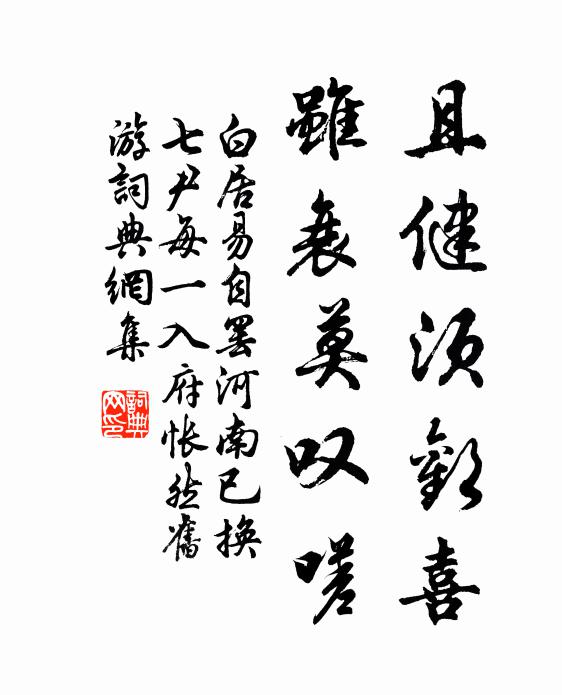 且健須歡喜
雖衰莫叹嗟
白居易自罢河南已换
七尹每一入府怅然舊
游詞典網集
詞典
网印